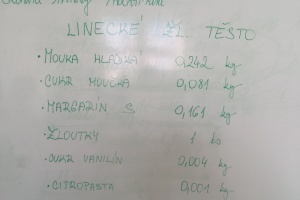 LINECKÉ ŽL. TĚSTO
· MOUKA HLADKÁ 0,242 kg
· CUKR MOUČKA 0,081 kg
· MARGARÍN S 0,161 kg
· ŽLOUTKY 1 ks
· CUKR VANILÍN 0,004 kg
· CITROPASTA 0,001 kg